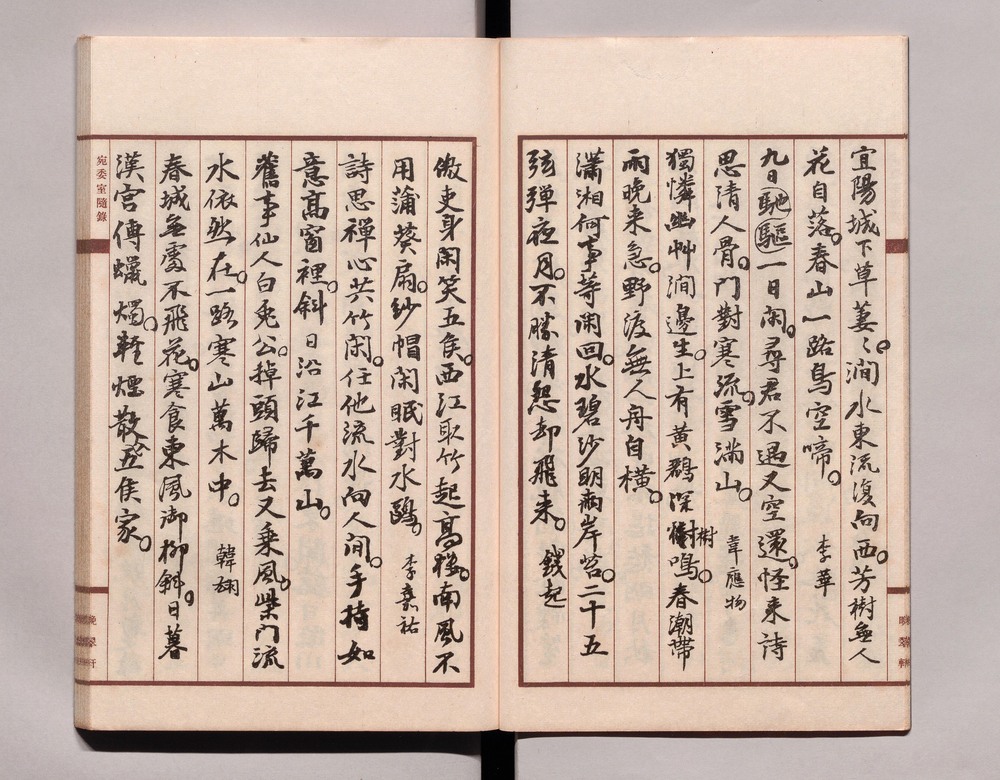 宜陽城下草萋〻。澗水東流復向西。芳樹無人
花自落。春山一路鳥空啼。 李華
九日馳驅一日閑。尋君不遇又空還。怪来詩
思清人骨。門對寒流雪滿山。 韋應物
獨憐幽艸澗邊生。上有黃鸝深樹鳴。春潮帶
樹
雨晚来急。野渡無人舟自橫。
瀟湘何事等閑回。水碧沙明兩岸苔。二十五
弦弹夜月。不勝清怨却飛来。 錢起
傲吏身閑笑五矦。西江取竹起高樓。南風不
用蒲葵扇。紗帽閑眠對水鷗。 李嘉祐
詩思禪心共竹閑。任他流水向人間。手持如
意高窗裡。斜日沿江千萬山。
舊事仙人白兔公。掉頭歸去又乘風。柴門流
水依然在。一路寒山萬木中。 韓翃
春城無處不飛花。寒食東風御柳斜。日暮
漢宮傳蠟燭。輕煙散五矦家。
宛委室隨錄
晚翠軒
晚翠軒